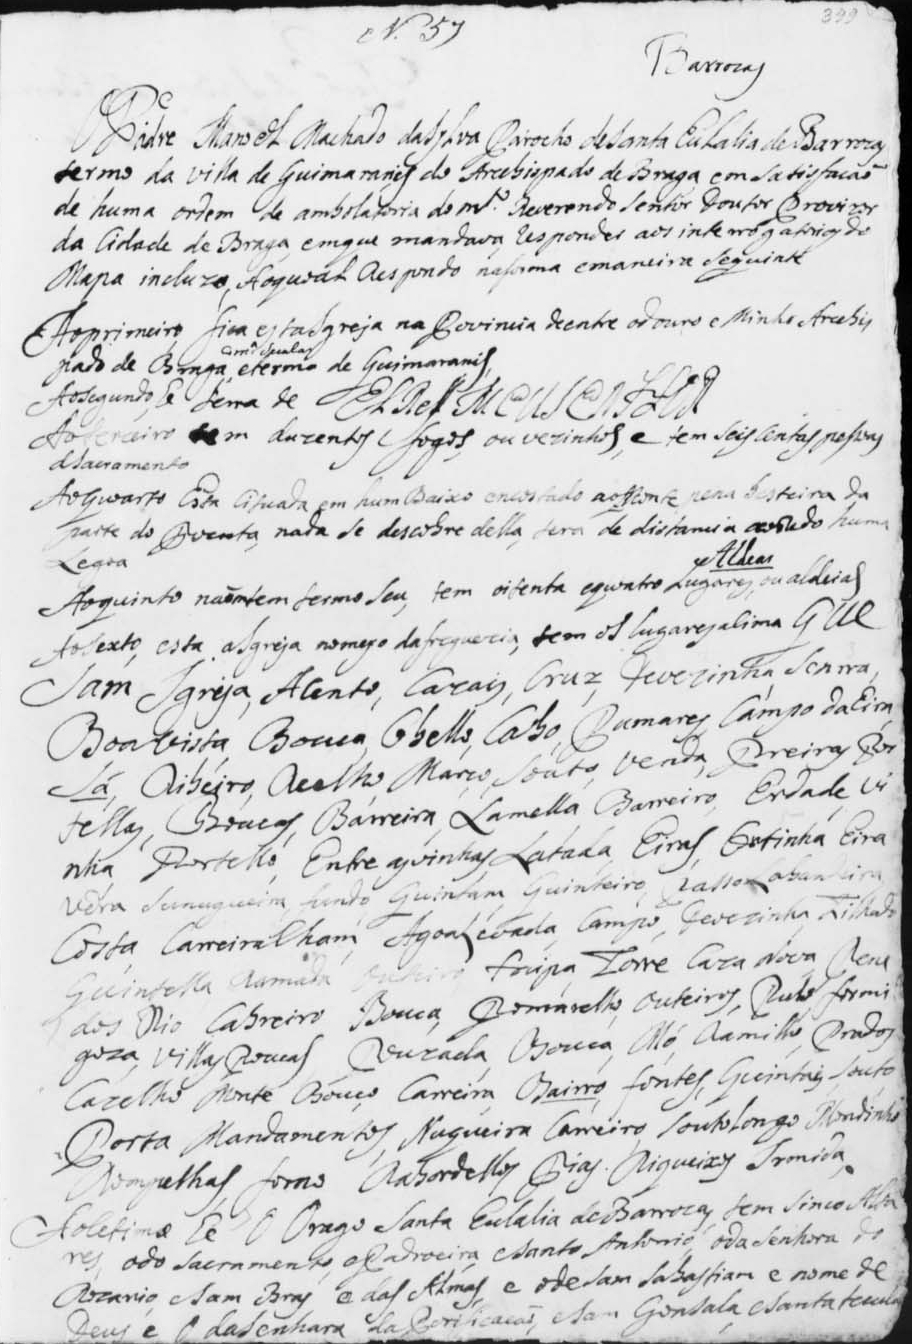 N. 57
399
Barrozas
O Padre Manoel Machado da Sylva Parocho de Santa Eulalia de Barrozas
termo da villa de Guimaranis do Arcebispado de Braga em satisfacaõ
de huma ordem de ambolatoria do m.to Reverendo Senhor Doutor Provizor
da Cidade de Braga, emque mandava Responder aos interrogatorios do
Mapa incluzo, Aoqual Respondo na forma emaneira Seguinte
Aoprimeiro, fica esta Igreja na Provincia de entre odouro e Minho Arcebis
pado de Braga, etermo de Guimaranis,
Aosegundo, he terra de El Rei
Ao terceiro tem duzentos fogos, ou vezinhos, e tem seis Centas pessoas
de sacramento
Ao Gwarto Esta Cituada em hum Baixo encostado ao Monte pena besteira da
parte do Poente, nada se descobre della, sera de distancia huma
Legoa
Aldeas
Aoquinto naõ tem termo seu, tem oitenta eqwatro Lugares, ou aldeias
Aosexto, esta aIgreja nomeyo dafreguezia, tem os lugares alima que
Sam Igreja, Alento, Cazais, Cruz, Devezinha Senrra,
Boavista Bouca Obello, Cabo, Pamares, Campo da Eira,
Lá, Ribeiro, Recelho Março, Souto, Venda, Preiras Por
tellas, Boucas, Barreira, Lamella Barreiro, Erdade Vi
nha Portello, Entre asvinhas Latada, Eiras, Cortinha, Eira
vedra fundo, Quintam, Quinteiro,
Costa Carreira Cham, Agoa Levada, Campo, Devezinha, Telhado
Quintella Ramada Outeiro Torre Caza Nova, Rena
dos Rio Cabreiro, Bouca, Pomarelho, Outeiros, formi
goza, Villas Poucas, Pouzada, Bouca, Mó, Ramilho, Prados
Cazelho Monte Bouço Carreira Bairro, fontes, Quintas, Souto
Porta Mandamentos, Nugueira Carreiro, Souto Longo Moudinho
Rompelhas, forno Rabordellos Pias. Riqueixos Irmida.
Aoletimo he O Orago Santa Eulalia de Barrozas, tem sinco Alta
res, odo sacramento, ePadroeira, esanto Antonio, oda Senhora do
Rozario, esam Bras e das Almas, e odesam Sabastiam e nome de
Deus e O daSenhora da Porificacaõ, esam Gonsalo, esanta tecula